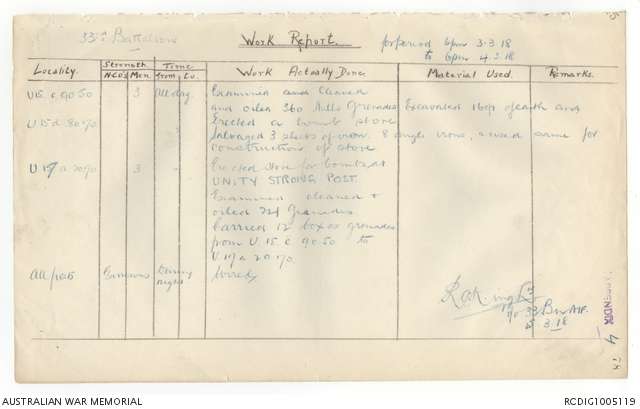 33rd Battalion
Work Report.
for period 6pm 3.3.18
to 6pm 4.3.18
Locality. Strength NCO's Men. Time from. to. Work Actually Done. Material Used. Remarks.
U15.c.90.50 3 All day. Examined and cleaned
and oiled 360 Mills Grenades. Excavated of earth and
U15d.80.70 Erected a bomb store
Salvaged 3 sheets of iron. 8 angle irons, & used same for
construction of store
U 17 a 20.70 3 Erected store for bombs at
UNITY STRONG POST.
Examined cleaned &
oiled 724 grenades
Carried 12 boxes grenades
from U.15.c.90.50 to
U17a 20.70
All posts Garrisons During night Wired
33 Bn AIF.
3.18
APPENDIX 4
AUSTRALIAN WAR MEMORIAL
RCDIG1005119